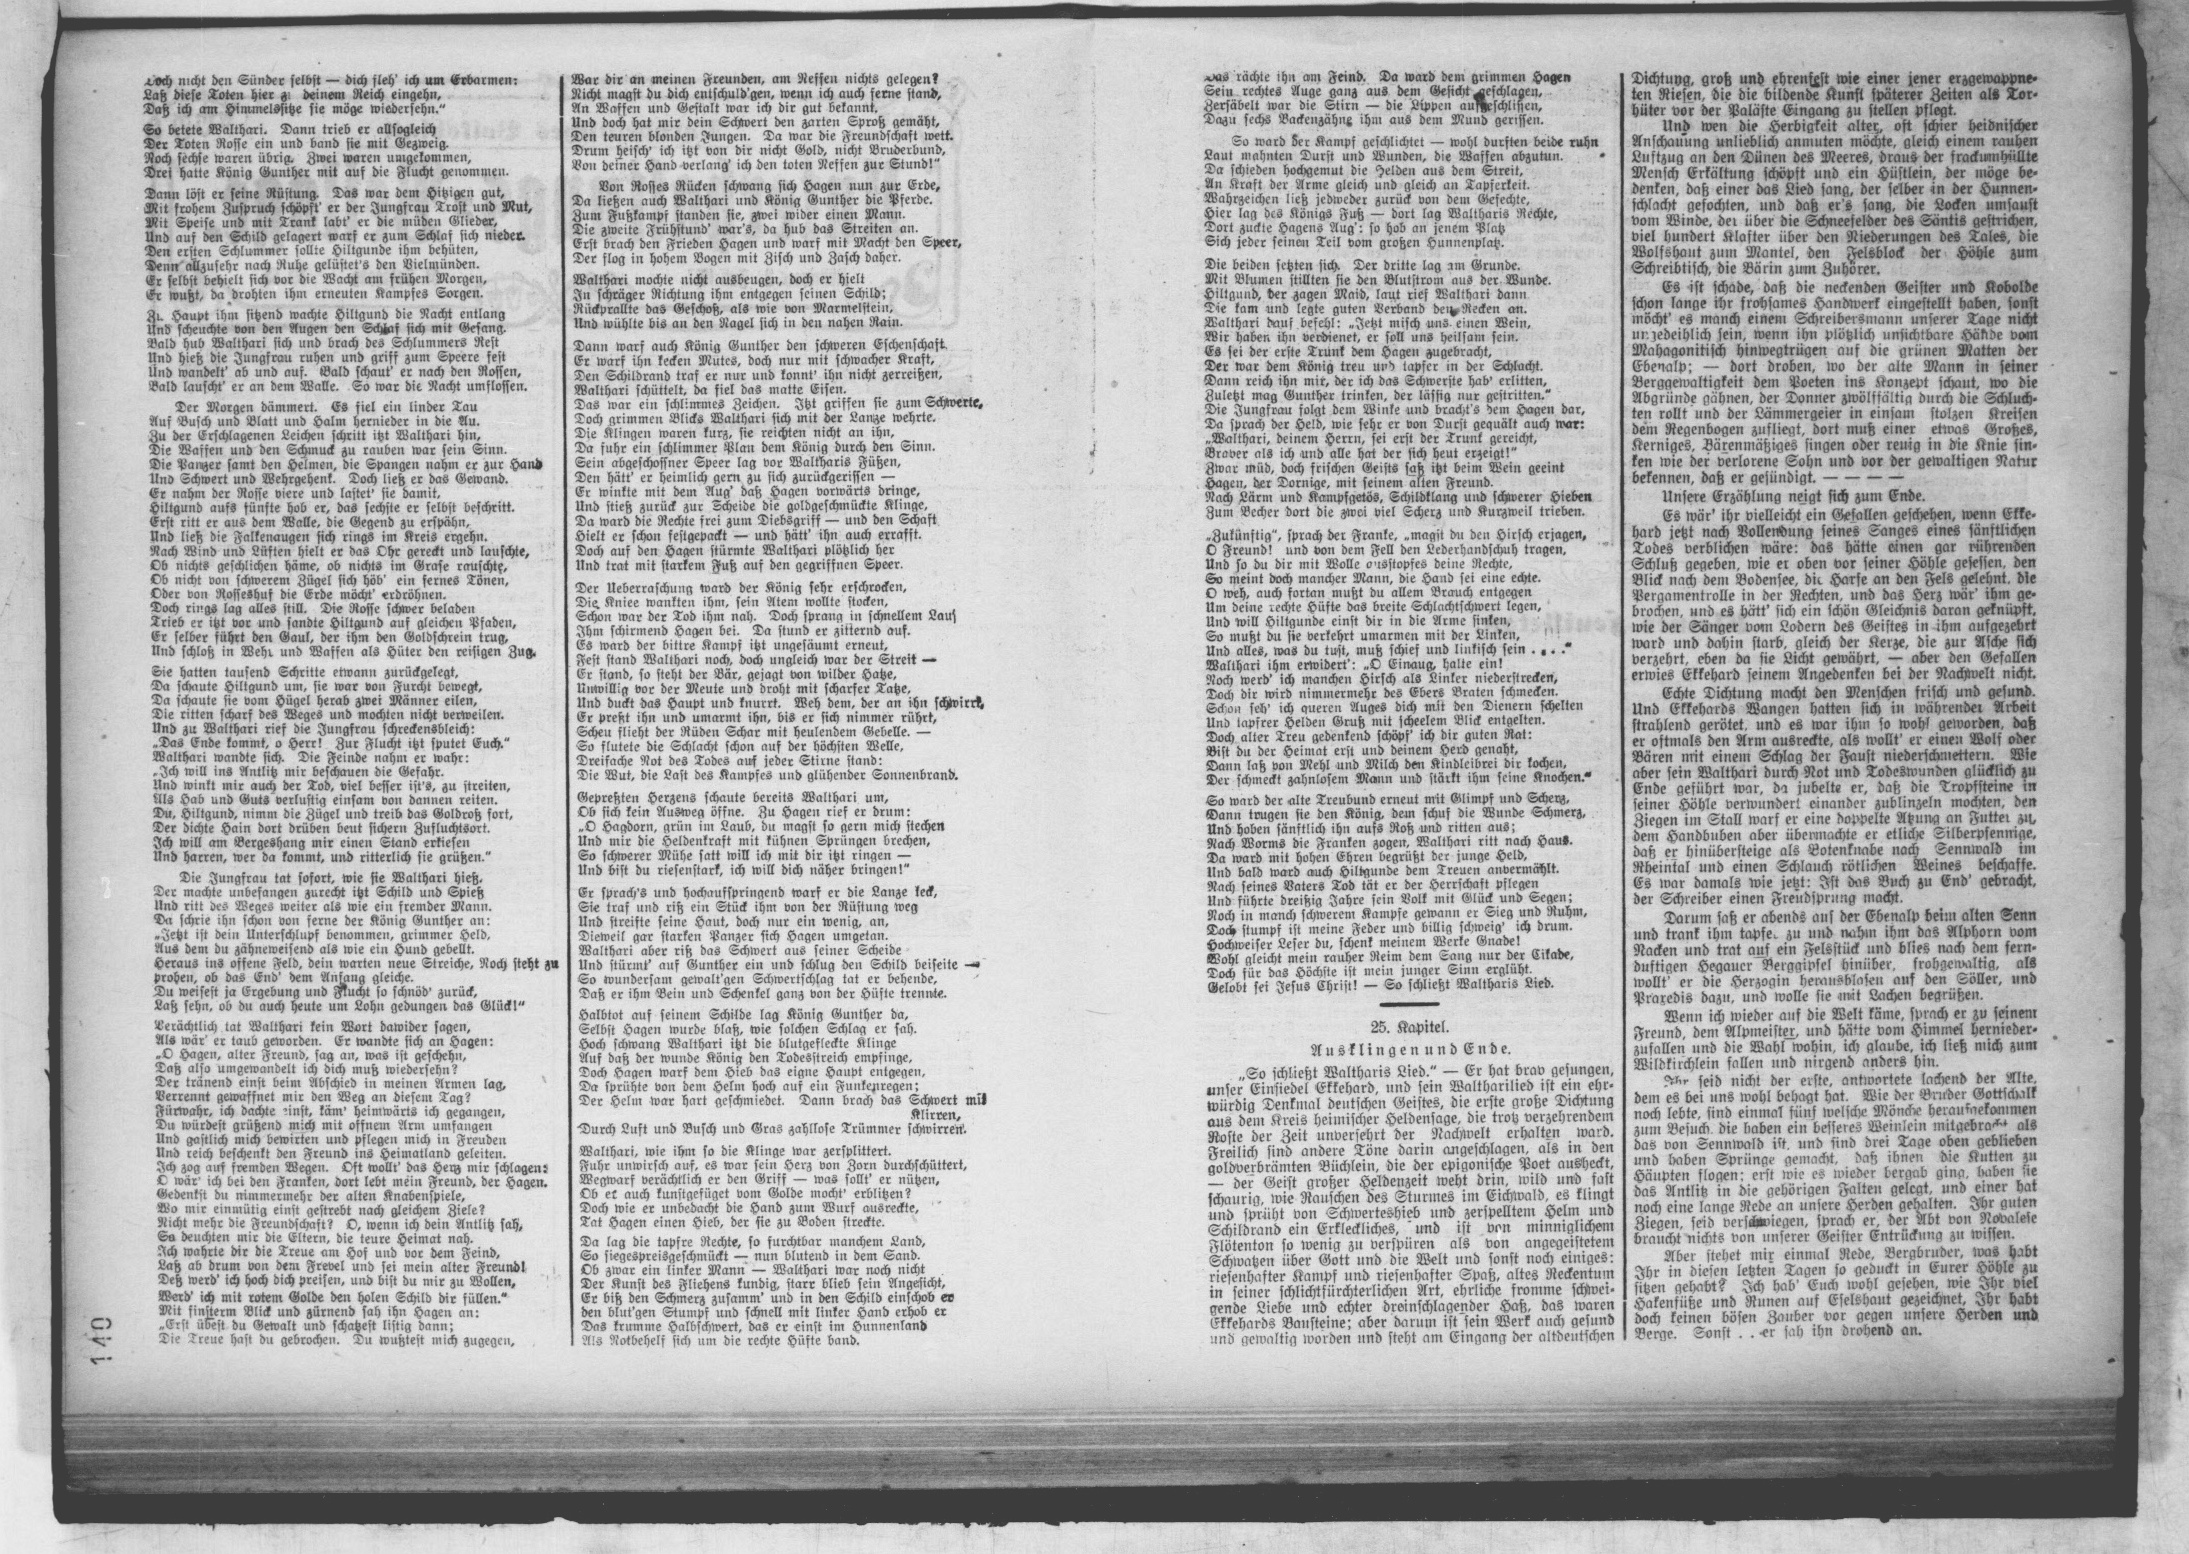 Doch nicht den Sünder selbst — dich fleh' ich um Erbarmen:
Laß diese Toten hier zu deinem Reich eingehn,
Daß ich am Himmelssitze sie möge wiedersehn.“
So betete Walthari. Dann trieb er allsogleich
Der Toten Rosse ein und band sie mit Gezweig.
Noch sechse waren übrig. Zwei waren umgekommen,
Drei hatte König Gunther mit auf die Flucht genommen.
Dann löst er seine Rüstung. Das war dem Hitzigen gut,
Mit frohem Zuspruch schöpft' er der Jungfrau Trost und Mut,
Mit Speise und mit Trank labt' er die müden Glieder,
Und auf den Schild gelagert warf er zum Schlaf sich nieder.
Den ersten Schlummer sollte Hiltgunde ihm behüten,
Denn allzusehr nach Ruhe gelüstet's den Vielmünden.
Er selbst behielt sich vor die Wacht am frühen Morgen,
Er wußt, da drohten ihm erneuten Kampfes Sorgen.
Zu Haupt ihm sitzend wachte Hiltgund die Nacht entlang
Und scheuchte von den Augen den Schlaf sich mit Gesang.
Bald hub Walthari sich und brach des Schlummers Rest
Und hieß die Jungfrau ruhen und griff zum Speere fest
Und wandelt' ab und auf. Bald schaut' er nach den Rossen,
Bald lauscht' er an dem Walle. So war die Nacht umflossen.
Der Morgen dämmert. Es fiel ein linder Tau
Auf Busch und Blatt und Halm hernieder in die Au.
Zu der Erschlagenen Leichen schritt itzt Walthari hin,
Die Waffen und den Schmuck zu rauben war sein Sinn.
Die Panzer samt den Helmen, die Spangen nahm er zur Hand
Und Schwert und Wehrgehenk. Doch ließ er das Gewand.
Er nahm der Rosse viere und lastet' sie damit,
Hiltgund aufs fünfte hob er, das sechste er selbst beschritt.
Erst ritt er aus dem Walle, die Gegend zu erspähn,
Und ließ die Falkenaugen sich rings im Kreis ergehn.
Nach Wind und Lüften hielt er das Ohr gereckt und lauschte,
Ob nichts geschlichen käme, ob nichts im Grase rauschte,
Ob nicht von schwerem Zügel sich höb' ein fernes Tönen,
Oder von Rosseshuf die Erde möcht' erdröhnen.
Doch rings lag alles still. Die Rosse schwer beladen
Trieb er itzt vor und sandte Hiltgund auf gleichen Pfaden,
Er selber führt den Gaul, der ihm den Goldschrein trug,
Und schloß in Wehr und Waffen als Hüter den reisigen Zug.
Sie hatten tausend Schritte etwann zurückgelegt,
Da schaute Hiltgund um, sie war von Furcht bewegt,
Da schaute sie vom Hügel herab zwei Männer eilen,
Die ritten scharf des Weges und mochten nicht verweilen.
Und zu Walthari rief die Jungfrau schreckensbleich:
„Das Ende kommt, o Herr! Zur Flucht itzt sputet Euch.“
Walthari wandte sich. Die Feinde nahm er wahr:
„Ich will ins Antlitz mir beschauen die Gefahr.
Und winkt mir auch der Tod, viel besser ist's, zu streiten,
Als Hab und Guts verlustig einsam von dannen reiten.
Du, Hiltgund, nimm die Zügel und treib das Goldroß fort,
Der dichte Hain dort drüben beut sichern Zufluchtsort.
Ich will am Bergeshang mir einen Stand erkiesen
Und harren, wer da kommt, und ritterlich sie grüßen.“
Die Jungfrau tat sofort, wie sie Walthari hieß.
Der machte unbefangen zurecht itzt Schild und Spieß
Und ritt des Weges weiter als wie ein fremder Mann.
Da schrie ihn schon von ferne der König Gunther an:
„Jetzt ist dein Unterschlupf benommen, grimmer Held,
Aus dem du zähneweisend als wie ein Hund gebellt.
Heraus ins offene Feld, dein warten neue Streiche, Noch steht zu
proben, ob das End' dem Anfang gleiche.
Du weisest ja Ergebung und Flucht so schnöd' zurück,
Laß sehn, ob du auch heute um Lohn gedungen das Glück!“
Verächtlich tat Walthari kein Wort dawider sagen,
Als wär' er taub geworden. Er wandte sich an Hagen:
„O Hagen, alter Freund, sag an, was ist geschehn,
Daß also umgewandelt ich dich muß wiedersehn?
Der tränend einst beim Abschied in meinen Armen lag,
Verrennt gewaffnet mir den Weg an diesem Tag?
Fürwahr, ich dachte einst, käm' heimwärts ich gegangen,
Du würdest grüßend mich mit offnem Arm umfangen
Und gastlich mich bewirten und pflegen mich in Freuden
Und reich beschenkt den Freund ins Heimatland geleiten.
Ich zog auf fremden Wegen. Oft wollt' das Herz mir schlagen:
O wär' ich bei den Franken, dort lebt mein Freund, der Hagen.
Gedenkst du nimmermehr der alten Knabenspiele,
Wo mir einmütig einst gestrebt nach gleichem Ziele?
Nicht mehr die Freundschaft? O, wenn ich dein Antlitz sah,
So deuchten mir die Eltern, die teure Heimat nah.
Ich wahrte dir die Treue am Hof und vor dem Feind,
Laß ab drum von dem Frevel und sei mein alter Freund!
Deß werd' ich hoch dich preisen, und bist du mir zu Wollen,
Werd' ich mit rotem Golde den holen Schild dir füllen.“
Mit finsterm Blick und zürnend sah ihn Hagen an:
„Erst übest du Gewalt und schatzest listig dann;
Die Treue hast du gebrochen. Du wußtest mich zugegen,
War dir an meinen Freunden, am Neffen nichts gelegen?
Nicht magst du dich entschuld'gen, wenn ich auch ferne stand,
An Waffen und Gestalt war ich dir gut bekannt.
Und doch hat mir dein Schwert den zarten Sproß gemäht,
Den teuren blonden Jungen. Da war die Freundschaft wett.
Drum heisch' ich itzt von dir nicht Gold, nicht Bruderbund,
Von deiner Hand verlang' ich den toten Neffen zur Stund!“
Von Rosses Rücken schwang sich Hagen nun zur Erde,
Da ließen auch Walthari und König Gunther die Pferde.
Zum Fußkampf standen sie, zwei wider einen Mann.
Die zweite Frühstund' war's, da hub das Streiten an.
Erst brach den Frieden Hagen und warf mit Macht den Speer,
Der flog in hohem Bogen mit Zisch und Zasch daher.
Walthari mochte nicht ausbeugen, doch er hielt
In schräger Richtung ihm entgegen seinen Schild;
Rückprallte das Geschoß, als wie von Marmelstein,
Und wühlte bis an den Nagel sich in den nahen Rain.
Dann warf auch König Gunther den schweren Eschenschaft.
Er warf ihn kecken Mutes, doch nur mit schwacher Kraft,
Den Schildrand traf er nur und konnt' ihn nicht zerreißen,
Walthari schüttelt, da fiel das matte Eisen.
Das war ein schlimmes Zeichen. Itzt griffen sie zum Schwerte,
Doch grimmen Blicks Walthari sich mit der Lanze wehrte.
Die Klingen waren kurz, sie reichten nicht an ihn,
Da fuhr ein schlimmer Plan dem König durch den Sinn.
Sein abgeschossner Speer lag vor Waltharis Füßen,
Den hätt' er heimlich gern zu sich zurückgerissen —
Er winkte mit dem Aug' daß Hagen vorwärts dringe,
Und stieß zurück zur Scheide die goldgeschmückte Klinge,
Da ward die Rechte frei zum Diebsgriff — und den Schaft
Hielt er schon festgepackt — und hätt' ihn auch errafft.
Doch auf den Hagen stürmte Walthari plötzlich her
Und trat mit starkem Fuß auf den gegriffnen Speer.
Der Ueberraschung ward der König sehr erschrocken,
Die Kniee wankten ihm, sein Atem wollte stocken,
Schon war der Tod ihm nah. Doch sprang in schnellem Lauf
Ihm schirmend Hagen bei. Da stund er zitternd auf.
Es ward der bittre Kampf itzt ungesäumt erneut,
Fest stand Walthari noch, doch ungleich war der Streit —
Er stand, so steht der Bär, gejagt von wilder Hatze,
Unwillig vor der Meute und droht mit scharfer Tatze,
Und duckt das Haupt und knurrt. Weh dem, der an ihn schwirrt,
Er preßt ihn und umarmt ihn, bis er sich nimmer rührt,
Scheu flieht der Rüden Schar mit heulendem Gebelle. —
So flutete die Schlacht schon auf der höchsten Welle,
Dreifache Not des Todes auf jeder Stirne stand:
Die Wut, die Last des Kampfes und glühender Sonnenbrand.
Gepreßten Herzens schaute bereits Walthari um,
Ob sich kein Ausweg öffne. Zu Hagen rief er drum:
„O Hagdorn, grün im Laub, du magst so gern mich stechen
Und mir die Heldenkraft mit kühnen Sprüngen brechen,
So schwerer Mühe satt will ich mit dir itzt ringen —
Und bist du riesenstark, ich will dich näher bringen!“
Er sprach's und hochaufspringend warf er die Lanze keck,
Sie traf und riß ein Stück ihm von der Rüstung weg
Und streifte seine Haut, doch nur ein wenig, an,
Dieweil gar starken Panzer sich Hagen umgetan.
Walthari aber riß das Schwert aus seiner Scheide
Und stürmt' auf Gunther ein und schlug den Schild beiseite —
So wundersam gewalt'gen Schwertschlag tat er behende,
Daß er ihm Bein und Schenkel ganz von der Hüfte trennte.
Halbtot auf seinem Schilde lag König Gunther da,
Selbst Hagen wurde blaß, wie solchen Schlag er sah.
Hoch schwang Walthari itzt die blutgefleckte Klinge
Auf daß der wunde König den Todesstreich empfinge,
Doch Hagen warf dem Hieb das eigne Haupt entgegen,
Da sprühte von dem Helm hoch auf ein Funkenregen;
Der Helm war hart geschmiedet. Dann brach das Schwert mit
Klirren,
Durch Luft und Busch und Gras zahllose Trümmer schwirren.
Walthari, wie ihm so die Klinge war zersplittert.
Fuhr unwirsch auf, es war sein Herz von Zorn durchschüttert,
Wegwarf verächtlich er den Griff — was sollt' er nützen,
Ob er auch kunstgefüget vom Golde mocht' erblitzen?
Doch wie er unbedacht die Hand zum Wurf ausreckte,
Tat Hagen einen Hieb, der sie zu Boden streckte.
Da lag die tapfre Rechte, so furchtbar manchem Land,
So siegespreisgeschmückt — nun blutend in dem Sand.
Ob zwar ein linker Mann — Walthari war noch nicht
Der Kunst des Fliehens kundig, starr blieb sein Angesicht,
Er biß den Schmerz zusamm' und in den Schild einschob er
den blut'gen Stumpf und schnell mit linker Hand erhob er
Das krumme Halbschwert, das er einst im Hunnenland
Als Notbehelf sich um die rechte Hüfte band.
Das rächte ihn am Feind. Da ward dem grimmen Hagen
Sein rechtes Auge ganz aus dem Gesicht geschlagen,
Zersäbelt war die Stirn — die Lippen aufgeschlissen,
Dazu sechs Backenzähne ihm aus dem Mund gerissen.
So ward der Kampf geschlichtet — wohl durften beide ruhn
Laut mahnten Durst und Wunden, die Waffen abzutun.
Da schieden hochgemut die Helden aus dem Streit,
An Kraft der Arme gleich und gleich an Tapferkeit.
Wahrzeichen ließ jedweder zurück von dem Gefechte,
Hier lag des Königs Fuß — dort lag Waltharis Rechte,
Dort zuckte Hagens Aug': so hob an jenem Platz
Sich jeder seinen Teil vom großen Hunnenplatz.
Die beiden setzten sich. Der dritte lag am Grunde.
Mit Blumen stillten sie den Blutstrom aus der Wunde.
Hiltgund, der zagen Maid, laut rief Walthari dann
Die kam und legte guten Verband den Recken an.
Walthari dauf befehl: „Jetzt misch uns einen Wein,
Wir haben ihn verdienet, er soll uns heilsam sein.
Es sei der erste Trunk dem Hagen zugebracht,
Der war dem König treu und tapfer in der Schlacht.
Dann reich ihn mir, der ich das Schwerste hab' erlitten,
Zuletzt mag Gunther trinken, der lässig nur gestritten.“
Die Jungfrau folgt dem Winke und bracht's dem Hagen dar,
Da sprach der Held, wie sehr er von Durst gequält auch war:
„Walthari, deinem Herrn, sei erst der Trunk gereicht,
Braver als ich und alle hat der sich heut erzeigt!“
Zwar müd, doch frischen Geists saß itzt beim Wein geeint
Hagen, der Dornige, mit seinem alten Freund.
Nach Lärm und Kampfgetös, Schildklang und schwerer Hieben
Zum Becher dort die zwei viel Scherz und Kurzweil trieben.
„Zukünftig“, sprach der Franke, „magst du den Hirsch erjagen,
O Freund! und von dem Fell den Lederhandschuh tragen,
Und so du dir mit Wolle ausstopfes deine Rechte,
So meint doch mancher Mann, die Hand sei eine echte.
O weh, auch fortan mußt du allem Brauch entgegen
Um deine rechte Hüfte das breite Schlachtschwert legen,
Und will Hiltgunde einst dir in die Arme sinken,
So mußt du sie verkehrt umarmen mit der Linken,
Und alles, was du tust, muß schief und linkisch sein . . . .“
Walthari ihm erwidert': „O Einaug, halte ein!
Noch werd' ich manchen Hirsch als Linker niederstrecken,
Doch dir wird nimmermehr des Ebers Braten schmecken.
Schon seh' ich queren Auges dich mit den Dienern schelten
Und tapfrer Helden Gruß mit scheelem Blick entgelten.
Doch alter Treu gedenkend schöpf' ich dir guten Rat:
Bist du der Heimat erst und deinem Herd genaht,
Dann laß von Mehl und Milch den Kindleibrei dir kochen,
Der schmeckt zahnlosem Mann und stärkt ihm seine Knochen.“
So ward der alte Treubund erneut mit Glimpf und Scherz,
Dann trugen sie den König, dem schuf die Wunde Schmerz,
Und hoben sänftlich ihn aufs Roß und ritten aus;
Nach Worms die Franken zogen, Walthari ritt nach Haus.
Da ward mit hohen Ehren begrüßt der junge Held,
Und bald ward auch Hiltgunde dem Treuen anvermählt.
Nach seines Vaters Tod tät er der Herrschaft pflegen
Und führte dreißig Jahre sein Volk mit Glück und Segen;
Noch in manch schwerem Kampfe gewann er Sieg und Ruhm,
Doch stumpf ist meine Feder und billig schweig' ich drum.
Hochweiser Leser du, schenk meinem Werke Gnade!
Wohl gleicht mein rauher Reim dem Sang nur der Cikade,
Doch für das Höchste ist mein junger Sinn erglüht.
Gelobt sei Jesus Christ! — So schließt Waltharis Lied.
25. Kapitel.
Ausklingen und Ende.
„So schließt Waltharis Lied.“ — Er hat brav gesungen,
unser Einsiedel Ekkehard, und sein Waltharilied ist ein ehr-
würdig Denkmal deutschen Geistes, die erste große Dichtung
aus dem Kreis heimischer Heldensage, die trotz verzehrendem
Roste der Zeit unversehrt der Nachwelt erhalten ward.
Freilich sind andere Töne darin angeschlagen, als in den
goldverbrämten Büchlein, die der epigonische Poet ausheckt,
— der Geist großer Heldenzeit weht drin, wild und fast
schaurig, wie Rauschen des Sturmes im Eichwald, es klingt
und sprüht von Schwerteshieb und zerspelltem Helm und
Schildrand ein Erkleckliches, und ist von minniglichem
Flötenton so wenig zu verspüren als von angegeistetem
Schwatzen über Gott und die Welt und sonst noch einiges:
riesenhafter Kampf und riesenhafter Spaß, altes Reckentum
in seiner schlichtfürchterlichen Art, ehrliche fromme schwei-
gende Liebe und echter dreinschlagender Haß, das waren
Ekkehards Bausteine; aber darum ist sein Werk auch gesund
und gewaltig worden und steht am Eingang der altdeutschen
Dichtung, groß und ehrenfest wie einer jener erzgewappne-
ten Riesen, die die bildende Kunst späterer Zeiten als Tor-
hüter vor der Paläste Eingang zu stellen pflegt.
Und wen die Herbigkeit alter, oft schier heidnischer
Anschauung unlieblich anmuten möchte, gleich einem rauhen
Luftzug an den Dünen des Meeres, draus der frackumhüllte
Mensch Erkältung schöpft und ein Hüstlein, der möge be-
denken, daß einer das Lied sang, der selber in der Hunnen-
schlacht gefochten, und daß er's sang, die Locken umsaust
vom Winde, der über die Schneefelder des Säntis gestrichen,
viel hundert Klafter über den Niederungen des Tales, die
Wolfshaut zum Mantel, den Felsblock der Höhle zum
Schreibtisch, die Bärin zum Zuhörer.
Es ist schade, daß die neckenden Geister und Kobolde
schon lange ihr frohsames Handwerk eingestellt haben, sonst
möcht' es manch einem Schreibersmann unserer Tage nicht
ungedeihlich sein, wenn ihn plötzlich unsichtbare Hände vom
Mahagonitisch hinwegtrügen auf die grünen Matten der
Ebenalp; — dort droben, wo der alte Mann in seiner
Berggewaltigkeit dem Poeten ins Konzept schaut, wo die
Abgründe gähnen, der Donner zwölffältig durch die Schluch-
ten rollt und der Lämmergeier in einsam stolzen Kreisen
dem Regenbogen zufliegt, dort muß einer etwas Großes,
Kerniges, Bärenmäßiges singen oder reuig in die Knie sin-
ken wie der verlorene Sohn und vor der gewaltigen Natur
bekennen, daß er gesündigt. — — — —
Unsere Erzählung neigt sich zum Ende.
Es wär' ihr vielleicht ein Gefallen geschehen, wenn Ekke-
hard jetzt nach Vollendung seines Sanges eines sänftlichen
Todes verblichen wäre: das hätte einen gar rührenden
Schluß gegeben, wie er oben vor seiner Höhle gesessen, den
Blick nach dem Bodensee, die Harfe an den Fels gelehnt, die
Pergamentrolle in der Rechten, und das Herz wär' ihm ge-
brochen, und es hätt' sich ein schön Gleichnis daran geknüpft,
wie der Sänger vom Lodern des Geistes in ihm aufgezehrt
ward und dahin starb, gleich der Kerze, die zur Asche sich
verzehrt, eben da sie Licht gewährt, — aber den Gefallen
erwies Ekkehard seinem Angedenken bei der Nachwelt nicht.
Echte Dichtung macht den Menschen frisch und gesund.
Und Ekkehards Wangen hatten sich in während​er Arbeit
strahlend gerötet, und es war ihm so wohl geworden, daß
er oftmals den Arm ausreckte, als wollt' er einen Wolf oder
Bären mit einem Schlag der Faust niederschmettern. Wie
aber sein Walthari durch Not und Todeswunden glücklich zu
Ende geführt war, da jubelte er, daß die Tropfsteine in
seiner Höhle verwundert einander zublinzeln mochten, den
Ziegen im Stall warf er eine doppelte Atzung an Futter zu,
dem Handbuben aber übermachte er etliche Silberpfennige,
daß er hinübersteige als Botenknabe nach Sennwald im
Rheintal und einen Schlauch rötlichen Weines beschaffe.
Es war damals wie jetzt: Ist das Buch zu End' gebracht,
der Schreiber einen Freudsprung macht.
Darum saß er abends auf der Ebenalp beim alten Senn
und trank ihm tapfer zu und nahm ihm das Alphorn vom
Nacken und trat auf ein Felsstück und blies nach dem fern-
duftigen Hegauer Berggipfel hinüber, frohgewaltig, als
wollt' er die Herzogin herausblasen auf den Söller, und
Praxedis dazu, und wolle sie mit Lachen begrüßen.
Wenn ich wieder auf die Welt käme, sprach er zu seinem
Freund, dem Alpmeister, und hätte vom Himmel hernieder-
zufallen und die Wahl wohin, ich glaube, ich ließ mich zum
Wildkirchlein fallen und nirgend anders hin.
Ihr seid nicht der erste, antwortete lachend der Alte,
dem es bei uns wohl behagt hat. Wie der Bruder Gottschalk
noch lebte, sind einmal fünf welsche Mönche heraufgekommen
zum Besuch, die haben ein besseres Weinlein mitgebracht als
das von Sennwald ist, und sind drei Tage oben geblieben
und haben Sprünge gemacht, daß ihnen die Kutten zu
Häupten flogen; erst wie es wieder bergab ging, haben sie
das Antlitz in die gehörigen Falten gelegt, und einer hat
noch eine lange Rede an unsere Herden gehalten. Ihr guten
Ziegen, seid verschwiegen, sprach er, der Abt von Novalese
braucht nichts von unserer Geister Entrückung zu wissen.
Aber stehet mir einmal Rede, Bergbruder, was habt
Ihr in diesen letzten Tagen so geduckt in Eurer Höhle zu
sitzen gehabt? Ich hab' Euch wohl gesehen, wie Ihr viel
Hakenfüße und Runen auf Eselshaut gezeichnet, Ihr habt
doch keinen bösen Zauber vor gegen unsere Herden und
Berge. Sonst . . er sah ihn drohend an.
140